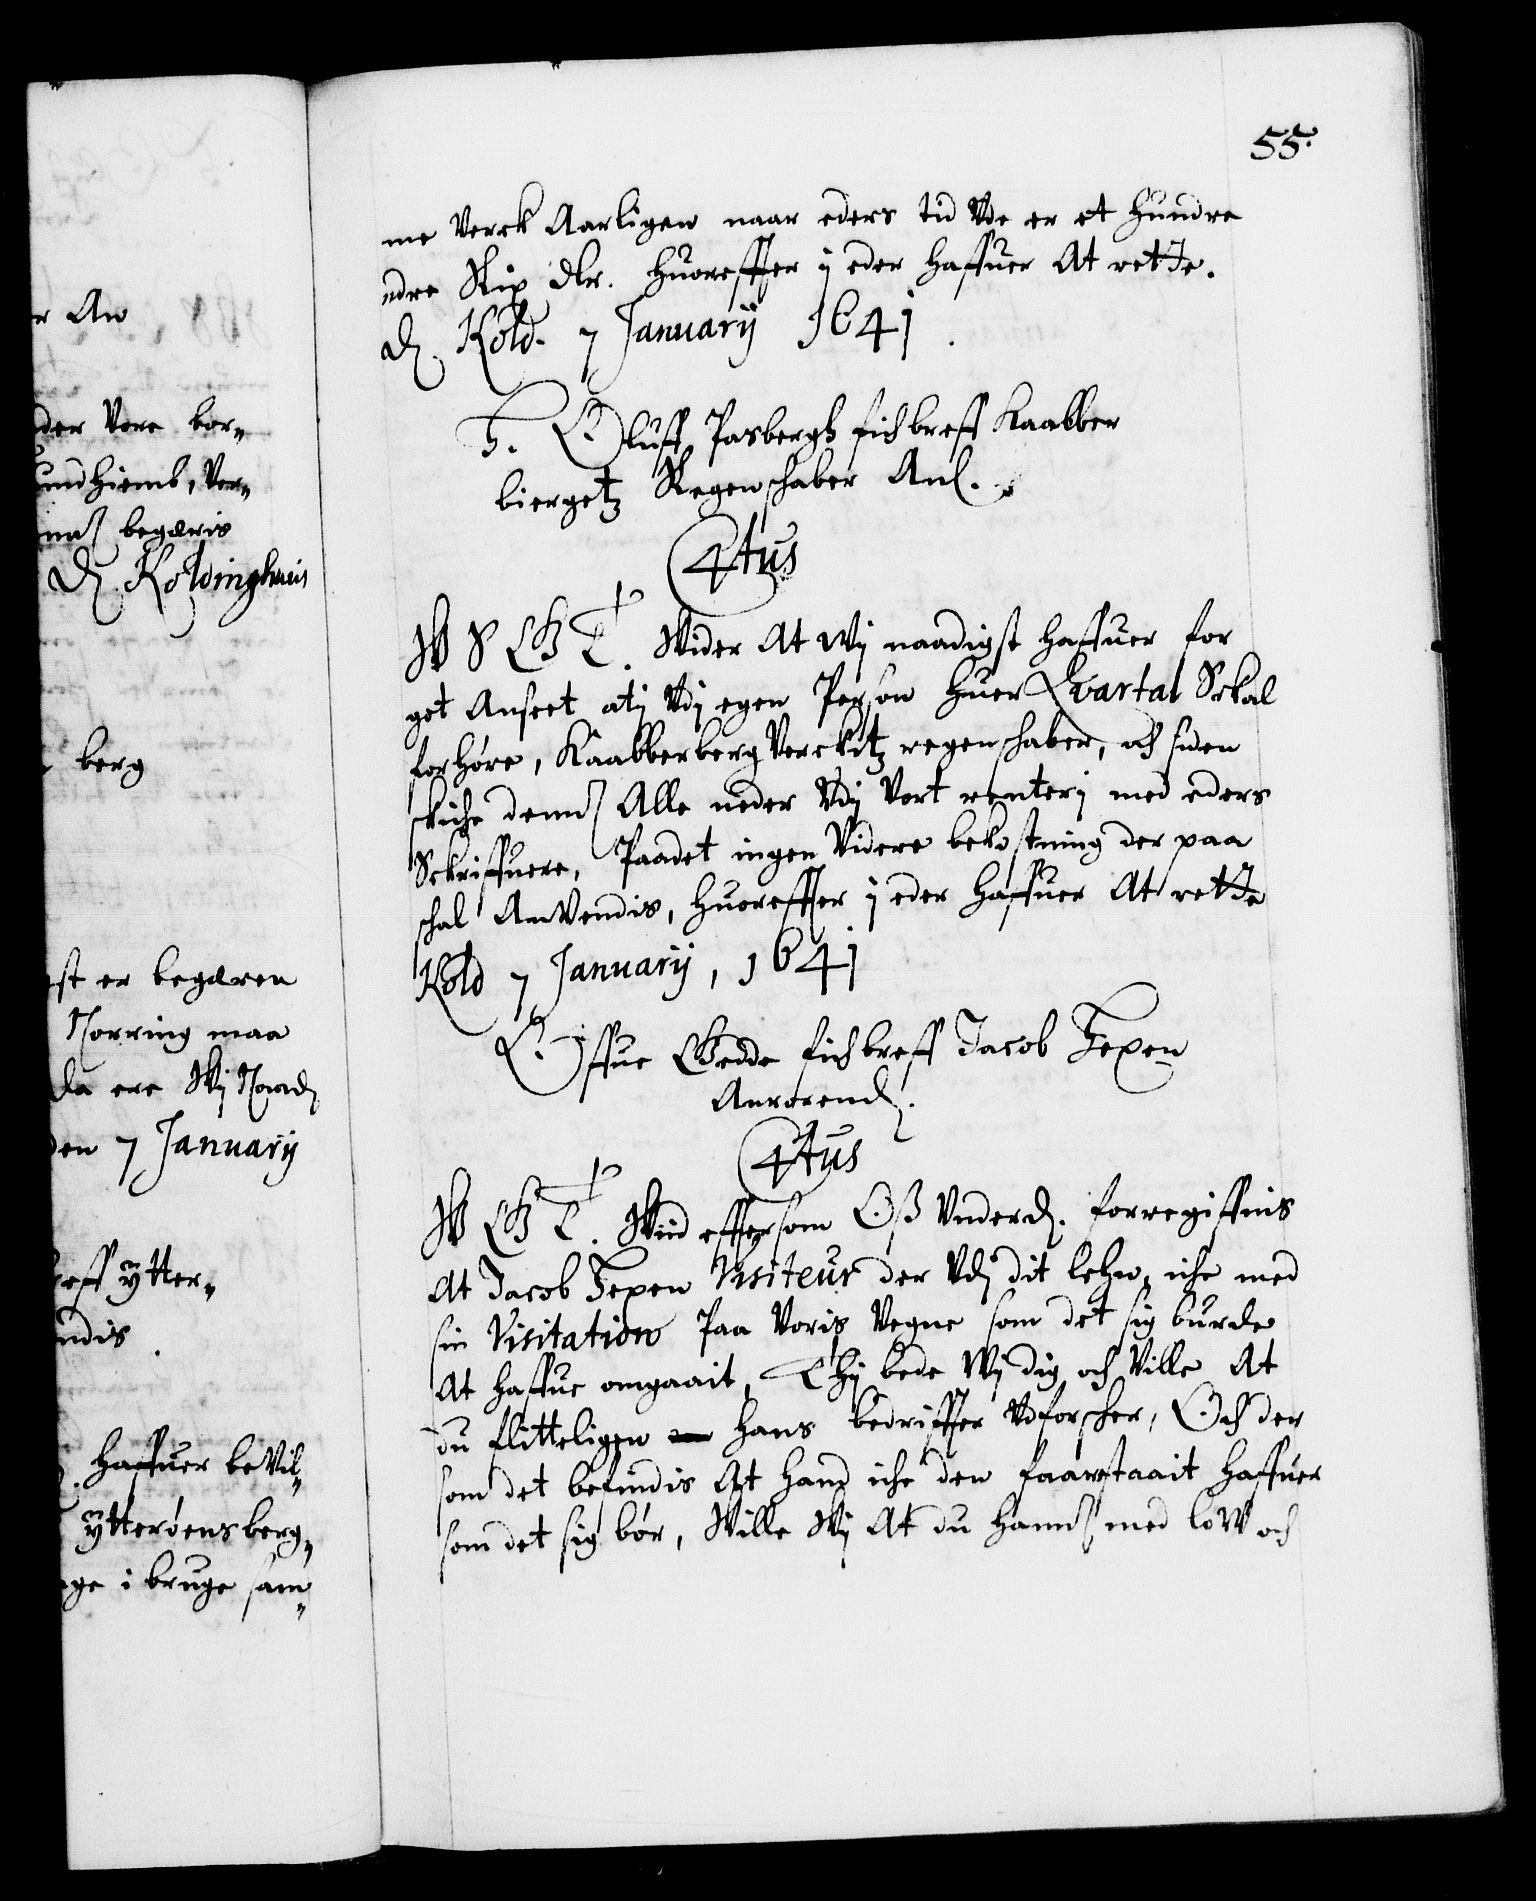 55.
me Verck Aarligen naar eders tid Vde er et hundre
ndre Rix dlr. Huorefftter ij eder haffuer At rette.
D. Kold. 7 Januarij 1641.
H. Oluff Pasbergh fich breff Kaabber
biergetz Regenschaber Anl.
Ctus
W S G T. Wider At Wij naadigst haffuer for
got Anseet atj Vdj egen Person huer Qvartal Schal
forhøre, Kaabberberg Verckitz regenschaber, och siden
skiche dennd Alle neder Vdj Vort renterj med eders
Schriffuere, Paadet ingen Videre bekostning der paa
schal AnVendis, Huorefftter ij eder haffuer At rette
Kold 7 Januarij, 1641
Offue Gedde fich breff Jacob Jepen
Anrørend.
Ctus
W G T. Wiid efftersom Oss Vnderd. forregiffuis
At Jacob Jepen Visiteur der Vdj dit lehn, iche med
sin Visitation Paa Voris Vegne som det sig burde
At haffue omgaait, Thj bede Wij dig och Ville At
du flitteligen hans bedriffter Vdforscher, Och der
som det befindis At hand iche den faarestaait haffuer
som det sig bør, Wille Wij At du hannd med loW och
r An
der Vore bor„
undhiemb, Ver„
begæris
D. Koldinghuus
berg
st er begæren
Norring maa
da ere Wij
den 7 Januarij
reff ÿtter„
ndis.
haffuer beVil„
ÿtterøens berg„
ge i bruge sam„